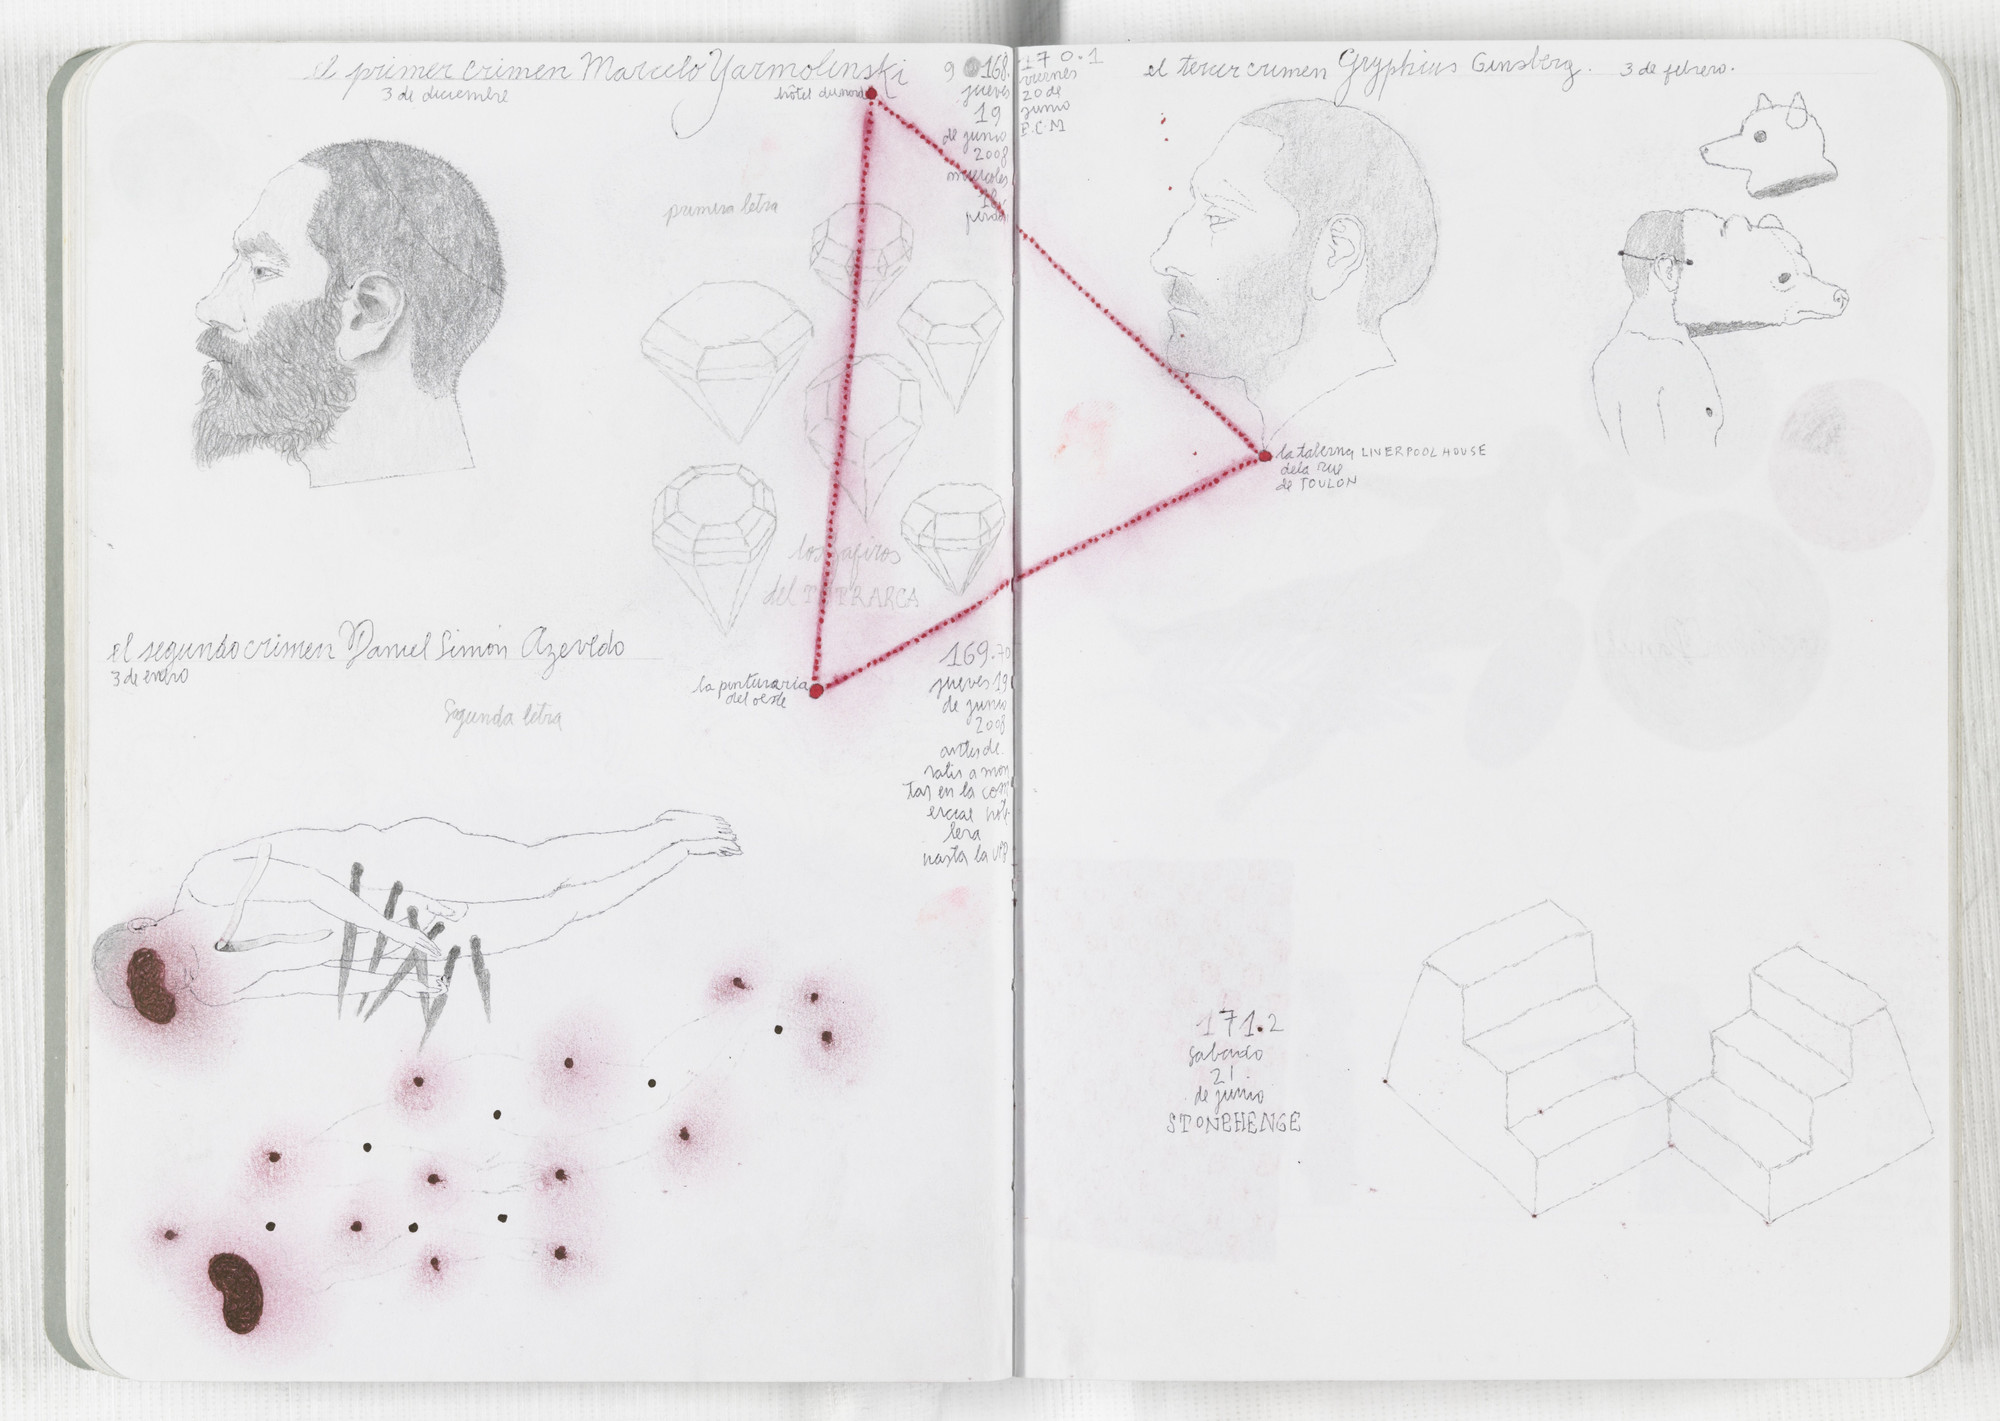 el primer crimen Marcelo Yarmolinski
3 de diciembre
hôtel du nord
9 168.
jueves
19
de junio
2008
miercoles
18
primera letra
los zafiros
del TETRARCA
el segundo crimen Daniel Simón Azevedo
3 de enero
Segunda letra
la pinturaria
del oeste
169.70
jueves 19
de junio
2008
antes de
salir a mon
tar en la com
ercial hote
lera
hasta la
170.1
viernes
20 de
junio
E.C.M
el tercer crimen Gryphius Ginsberg. 3 de febrero.
la taberna LIVERPOOL HOUSE
de la rue
de TOULON
171.2
Sabado
21
de junio
STONEHENGE